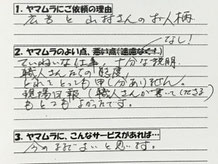 1. ヤマムラにご依頼の理由
広告と山村さんのお人柄
なし!
2. ヤマムラのよい点、悪い点(遠慮なく!)
ていねいな仕事、十分な説明、
職人さんの態度、
どれをとっても申し分ありません。
現場日報(職人さんが書いてくださる)
もとてもよかったです。
3. ヤマムラに、こんなサービスがあれば…
今のままでよいと思います。